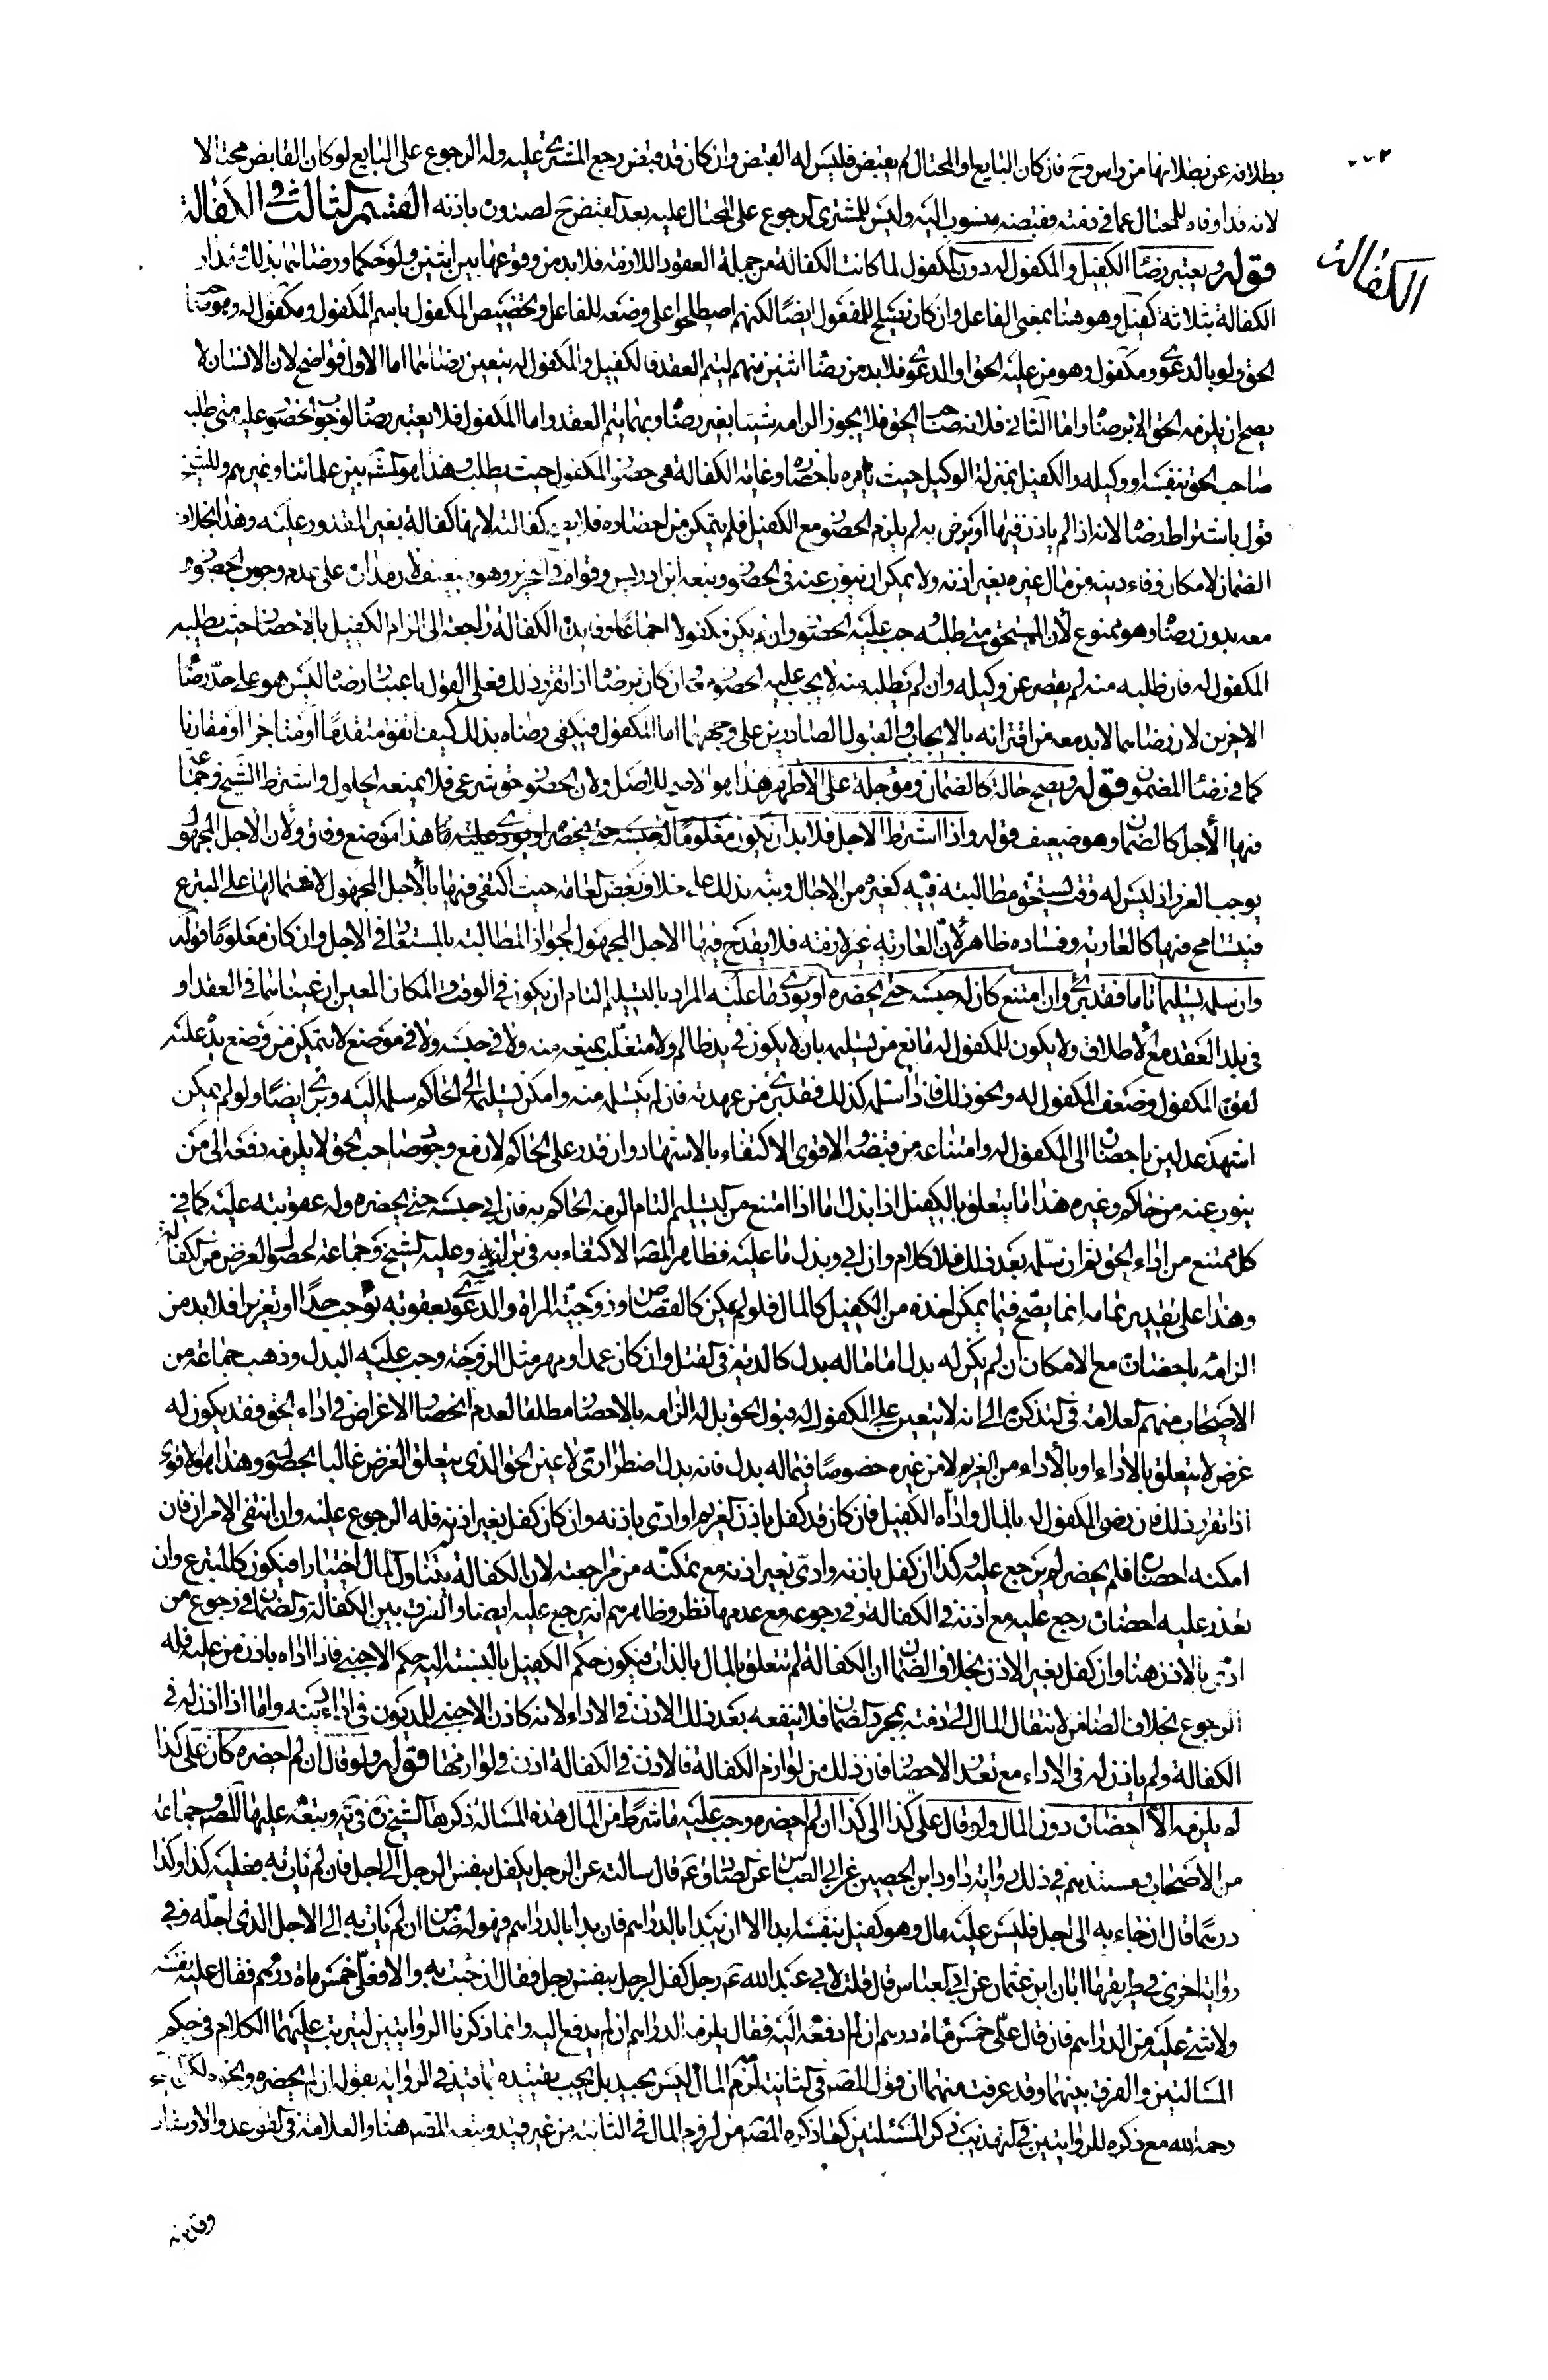 ٢٠٢
الكفالة
بطلانه عن بطلانها من راس وح فان كان البايع او المحتال لم يقبض فليس له القبض وان كان قد قبض رجع المشترى عليه وله الرجوع على البايع لو كان القابض محتالا
لانه قد اوفاه للمحتال عما فى ذمته فقبضه منسوب اليه وليس للمشترى الرجوع على المحتال عليه بعد القبض ح لصدوره باذنه القسم الثالث فى الكفالة
قوله ويعتبر رضا الكفيل والمكفول له دون المكفول لما كانت الكفالة من جملة العقود اللازمة فلا بد من وقوعها بين اثنين ولو حكما ورضاهما بذلك ومدار
الكفالة بثلاثة كفيل وهو هنا بمعنى الفاعل وان كان يصلح للمفعول ايضا لكنهم اصطلحوا على وضعه للفاعل وتخصيص المكفول باسم المكفول ومكفول له وهو صاحب
الحق ولو بالدعوى ومكفول وهو من عليه الحق او الدعوى فلا بد من رضا اثنين منهم ليتم العقد فالكفيل والمكفول له يتعين رضاهما اما الاول فواضح لان الانسان لا
يصح ان يلزمه الحق الا برضاه واما الثانى فلانه صاحب الحق فلا يجوز الزامه شيئا بغير رضاه وبهما يتم العقد واما المكفول فلا يعتبر رضاه لوجوب الحضور عليه متى طلبه
صاحب الحق بنفسه او وكيله والكفيل بمنزلة الوكيل حيث يامره باحضاره وغاية الكفالة هى حضور المكفول حيث يطلب وهذا هو المشهور بين علمائنا وغيرهم وللشيخ
قول باشتراط رضاه لانه اذا لم ياذن فيها او يرض به لم يلزم الحضور مع الكفيل فلم يتمكن من احضاره فلا يصح كفالته لانها كفالة بغير المقدور عليه وهذا بخلاف
الضمان لامكان وفاء دينه من مال غيره بغير اذنه ولا يمكن ان ينوب عنه فى الحضور وتبعه ابن ادريس وقواه فى التحرير وهو ضعيف لان مداره على عدم وجوب الحضور
معه بدون رضاه وهو ممنوع لأن المستحق متى طلبه وجب عليه الحضور وان لم يكن مكفولا اجماعا وفايدة الكفالة راجعة الى الزام الكفيل بالاحضار حيث يطلبه
المكفول له فان طلبه منه لم يقصر عن وكيله وان لم يطلبه منه لا يجب عليه الحضور معه وان كان برضاه اذا تقرر ذلك فعلى القول باعتبار رضاه ليس هو على حد رضا
الاخرين لان رضاهما لا بد معه من اقترانه بالايجاب والقبول الصادرين على وجههما اما المكفول فيكفى رضاه بذلك كيف اتفق متقدما او متاخرا او مقارنا
كما فى رضا المضمون عنه قوله ويصح حالة كالضمان ومؤجلة على الاظهر هذا هو الاصح للاصل ولان الحضور حق شرعى فلا يمنعه الحلول واشترط الشيخ وجماعة
فيها الأجل كالضمان وهو ضعيف قوله واذا اشترط الاجل فلا بد ان يكون معلوما هذا موضع وفاق ولأن الاجل المجهول
يوجب الغرر اذ ليس له وقت يستحق مطالبته فيه كغيره من الاجال ونبه بذلك على خلاف بعض العامة حيث اكتفى فيها بالأجل المجهول لاشتمالها على التبرع
فيتسامح فيها كالعارية وفساده ظاهر لأن العارية غير لازمة فلا يقدح فيها الاجل المجهول لجواز المطالبة بالمستعار فى الاجل وان كان معلوما قوله
وان سلمه تسليما تاما فقد برئ وان امتنع كان له حبسه حتى يحضره او يؤدى ما عليه المراد بالتسليم التام ان يكون فى الوقت والمكان المعين ان عيناهما فى العقد او
فى بلد العقد مع الأطلاق ولا يكون للمكفول له مانع من تسلمه بان لا يكون فى يد ظالم ولا متغلب يمنعه منه ولا فى حبسه ولا فى موضع لا يتمكن من وضع يده عليه
لقوة المكفول وضعف المكفول له ونحو ذلك فاذا سلمه كذلك فقد برئ من عهدته فان لم يتسلمه منه وامكن تسليمه الى الحاكم سلمه اليه وبرئ ايضا ولو لم يمكن
اشهد عدلين باحضاره الى المكفول له وامتناعه من قبضه والاقوى الاكتفاء بالاشهاد وان قدر على الحاكم لان مع وجود صاحب الحق لا يلزمه دفعه الى من
ينوب عنه من حاكم وغيره هذا ما يتعلق بالكفيل اذا بذل اما اذا امتنع من التسليم التام الزمه الحاكم به فان ابى حبسه حتى يحضره وله عقوبته عليه كما فى
كل ممتنع من اداء الحق ثم ان سلمه بعد ذلك فلا كلام وان ابى وبذل ما عليه فظاهر المصنف الاكتفاء به فى برائته وعليه الشيخ وجماعة لحصول الغرض من الكفالة
وهذا على تقدير تمامه انما يصح فيما يمكن اخذه من الكفيل كالمال فلو لم يمكن كالقصاص وزوجية المراة والدعوى بعقوبة توجب حدا او تعزيرا فلا بد من
الزامه باحضاره مع الامكان ان لم يكن له بدل اما ما له بدل كالدية فى القتل وان كان عمدا ومهر مثل الزوجة وجب عليه البدل وذهب جماعة من
الاصحاب منهم العلامة فى التذكرة الى انه لا يتعين على المكفول له قبول الحق بل له الزامه بالاحضار مطلقا لعدم انحصار الاغراض فى اداء الحق فقد يكون له
غرض لا يتعلق بالأداء او بالأداء من الغريم لا من غيره خصوصا فيما له بدل فانه بدل اضطرارى لا عين الحق الذى يتعلق الغرض غالبا بحصوله وهذا هو الاقوى
اذا تقرر ذلك فان رضى المكفول له بالمال واداه الكفيل فان كان قد كفل باذن الغريم او ادى باذنه وان كان كفل بغير اذنه فله الرجوع عليه وان انتفى الامران فان
امكنه احضاره فلم يحضره لم يرجع عليه وكذا ان كفل باذنه وادى بغير اذنه مع تمكنه من مراجعته لان الكفالة لم تتناول المال اختيارا فيكون كالمتبرع وان
تعذر عليه احضاره رجع عليه مع اذنه فى الكفالة وفى رجوعه مع عدمها نظر وظاهرهم انه يرجع عليه ايضا والفرق بين الكفالة والضمان فى رجوع من
ادى بالاذن هنا وان كفل بغير الاذن بخلاف الضمان ان الكفالة لم تتعلق بالمال بالذات فيكون حكم الكفيل بالنسبة اليه حكم الاجنبى فاذا اداه باذن من عليه فله
الرجوع بخلاف الضامن لانتقال المال الى ذمته بمجرد الضمان فلا ينفعه بعد ذلك الاذن فى الاداء لانه كاذن الاجنبى للمديون فى اداء دينه واما اذا اذن له فى
الكفالة ولم ياذن له فى الاداء مع تعذر الاحضار فان ذلك من لوازم الكفالة فالاذن فى الكفالة اذن فى لوازمها قوله ولو قال ان لم احضره كان على كذا
لم يلزمه الا احضاره دون المال ولو قال على كذا الى كذا ان لم احضره وجب عليه ما شرط من المال هذه المسالة ذكرها الشيخ ره فى يه وتبعه عليها المصنف وجماعة
من الاصحاب ومستندهم فى ذلك رواية داود ابن الحصين عن ابى العباس عن الصادق ع قال سالته عن الرجل يكفل بنفس الرجل الى اجل فان لم يات به فعليه كذا وكذا
درهما قال ان جاء به الى اجل فليس عليه مال وهو كفيل بنفسه ابدا الا ان يبدا بالدراهم فان بدا بالدراهم فهو له ضامن ان لم يات به الى الاجل الذى اجله وفى
رواية اخرى فى طريقها ابان ابن عثمان عن ابى العباس قال قلت لابى عبد الله ع رجل كفل لرجل بنفس رجل فقال ان جئت به والا فعلى خمس ماة درهم فقال عليه نفسه
ولا شئ عليه من الدراهم فان قال على خمس ماة درهم ان لم ادفعه اليه فقال يلزمه الدراهم ان لم يدفع اليه وانما ذكرنا الروايتين ليترتب عليهما الكلام فى حكم
المسالتين والفرق بينهما وقد عرفت منهما ان قول المصنف فى الثانية لزمه المال ليس بجيد بل يجب تقييده بما قيد فى الرواية بقوله ان لم يحضره ونحوه لكن الشيخ
رحمه الله مع ذكره للروايتين فى التهذيب ذكر المسئلتين كما ذكره المصنف من لزوم المال فى الثانية من غير قيد وتبعه المصنف هنا والعلامة فى القواعد والارشاد